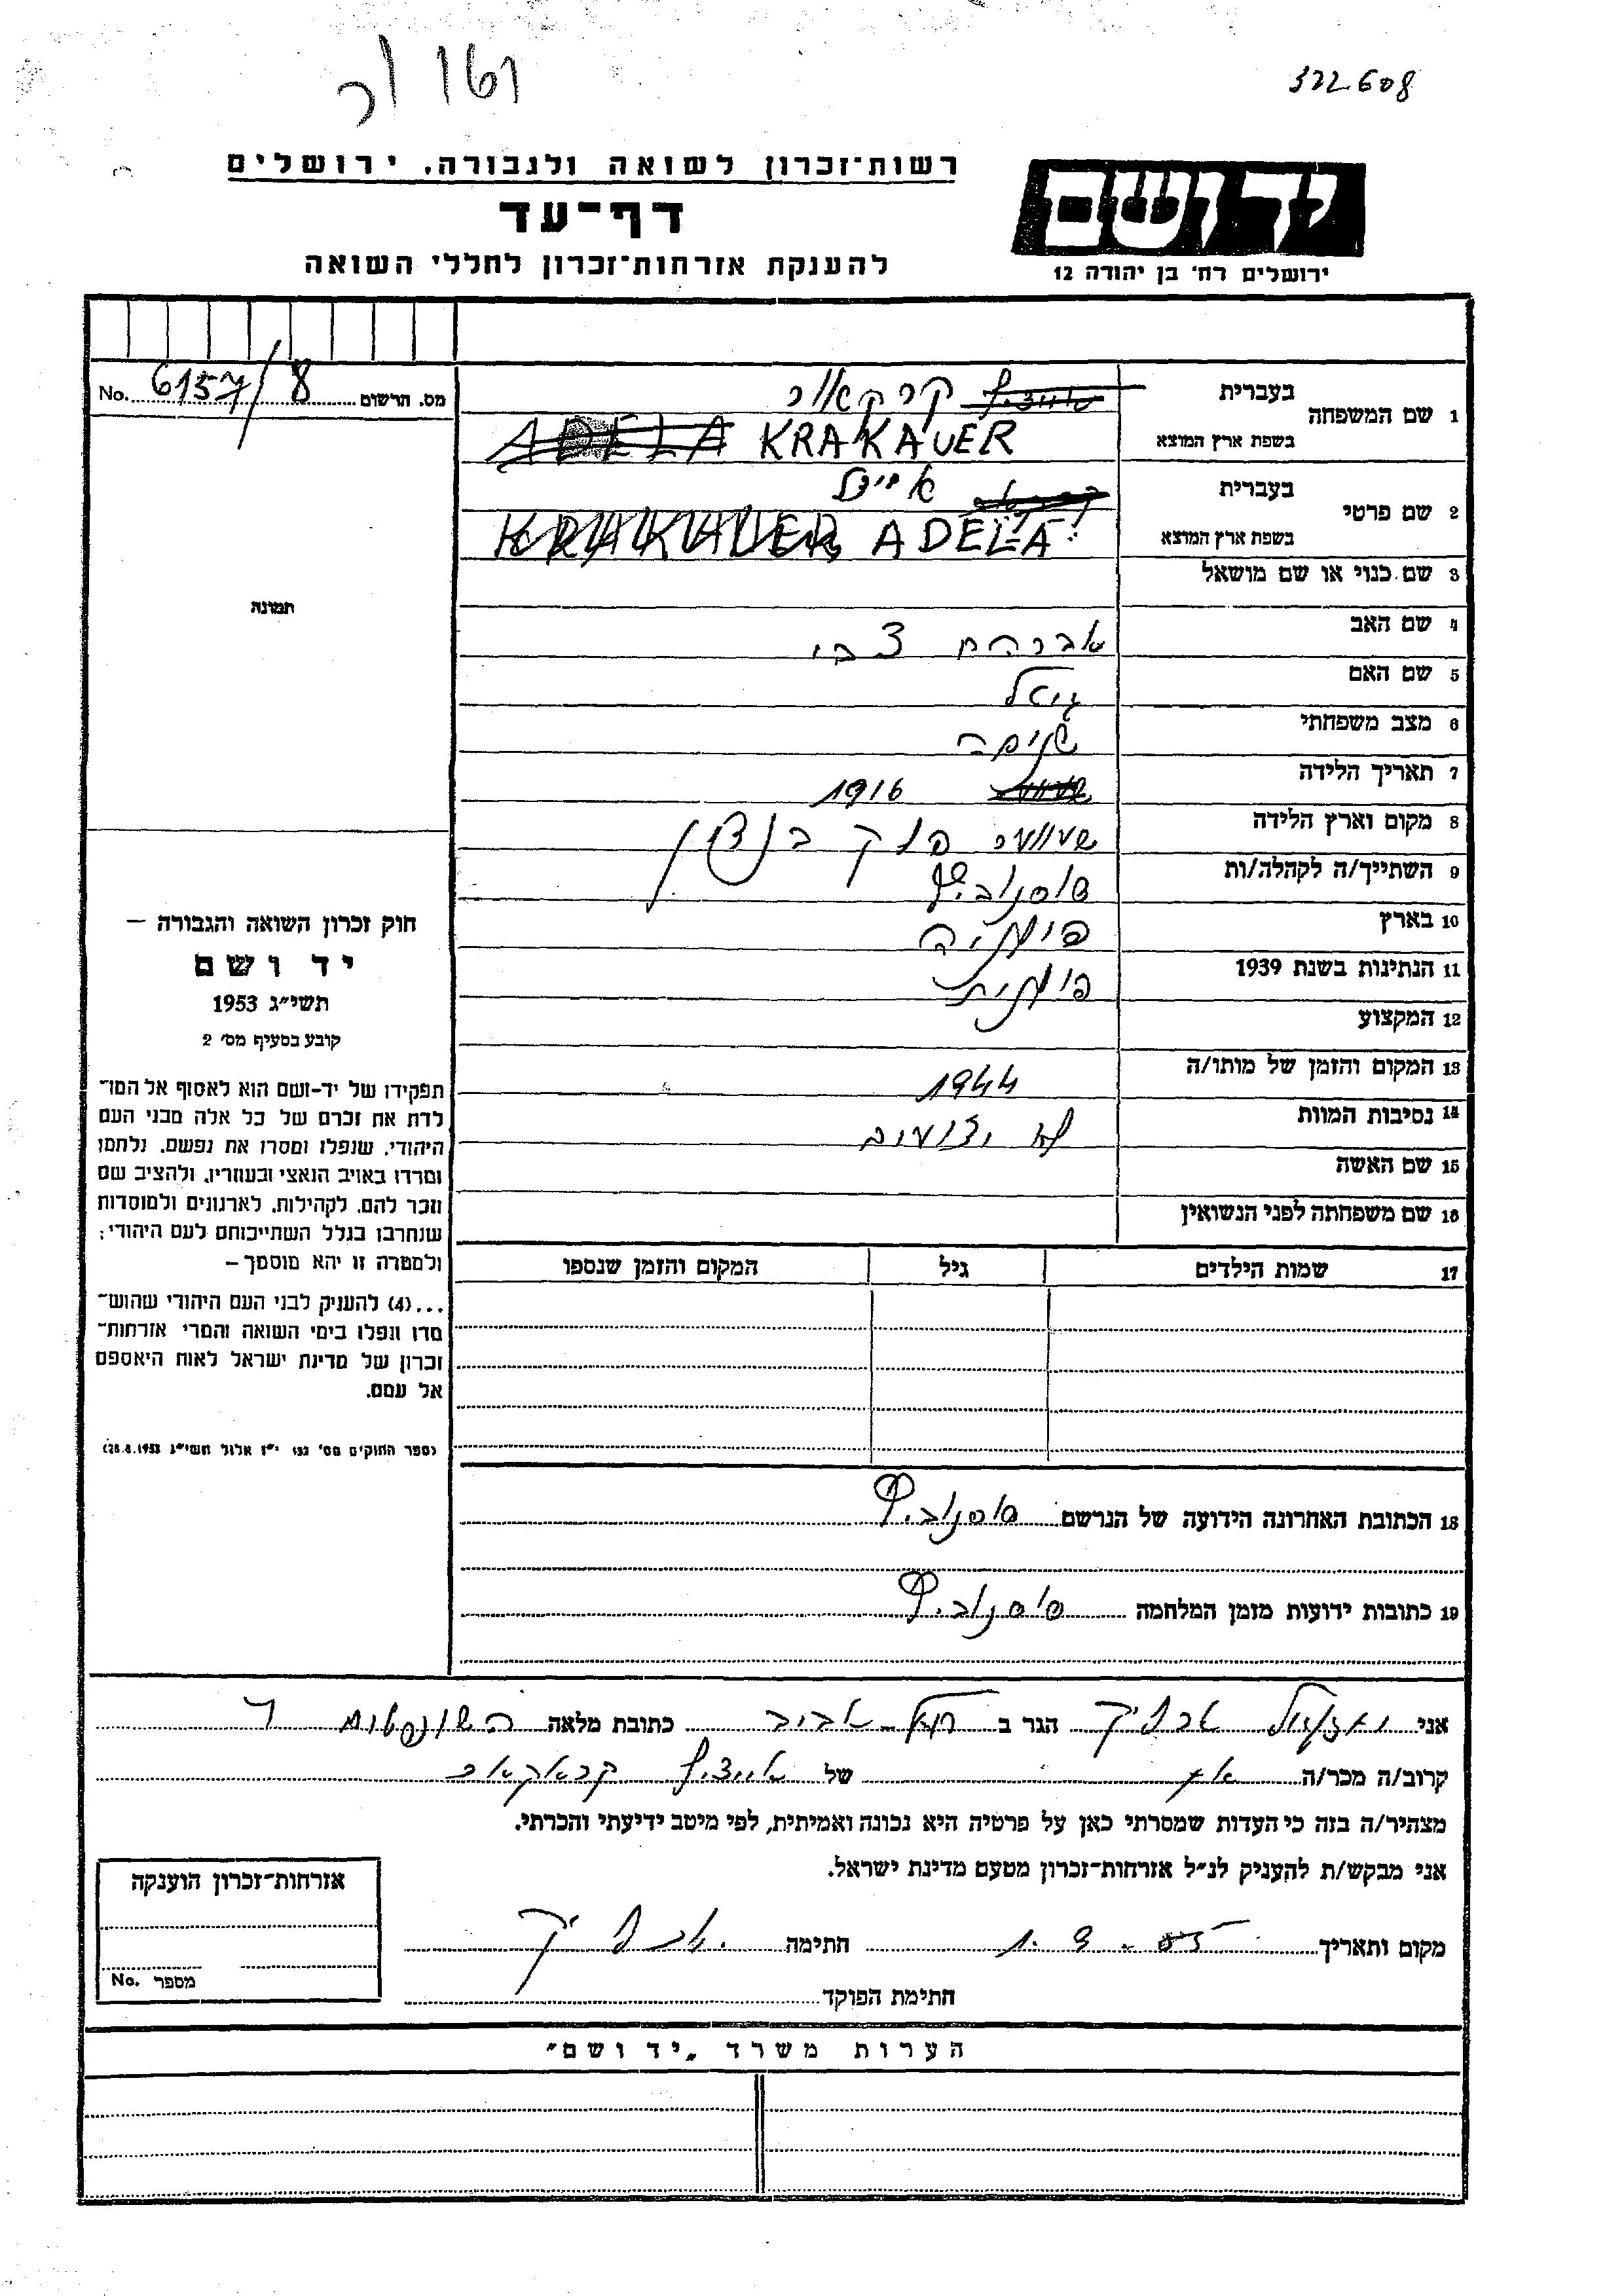 322608
רשות־זכרון לשואה ולגבורה, ירושלים
דף־עד
להענקת אזרחות־זכרון לחללי השואה
יד ושם
ירושלים רח׳ בן יהודה 12
מס. הרשום 6157/8 No.
1 שם המשפחה
בעברית קרקאור
בשפת ארץ המוצא ADELA KRAKAUER
2 שם פרטי
בעברית אידל
בשפת ארץ המוצא KRAKAUER ADELA
3 שם כנוי או שם מושאל
4 שם האב אברהם צבי
5 שם האם
6 מצב משפחתי
7 תאריך הלידה 1916
8 מקום וארץ הלידה
9 השתייך/ה לקהלה/ות סוסנוביץ
10 בארץ פולניה
11 הנתינות בשנת 1939 פולנית
12 המקצוע
13 המקום והזמן של מותו/ה 1944
14 נסיבות המוות לא ידועים
15 שם האשה
16 שם משפחתה לפני הנשואין
17 שמות הילדים גיל המקום והזמן שנספו
תמונה
חוק זכרון השואה והגבורה —
יד ושם
תשי״ג 1953
קובע בסעיף מס׳ 2
תפקידו של יד-ושם הוא לאסוף אל המו־
לדת את זכרם של כל אלה מבני העם
היהודי, שנפלו ומסרו את נפשם, נלחמו
ומרדו באויב הנאצי ובעוזריו, ולהציב שם
וזכר להם, לקהילות, לארגונים ולמוסדות
שנחרבו בגלל השתייכותם לעם היהודי;
ולמטרה זו יהא מוסמך —
...(4) להעניק לבני העם היהודי שהוש־
מדו ונפלו בימי השואה והמרי אזרחות־
זכרון של מדינת ישראל לאות היאספם
אל עמם.
(ספר החוקים מס׳ 132 י״ז אלול תשי״ג 28.8.1953)
18 הכתובת האחרונה הידועה של הנרשם סוסנוביץ
19 כתובות ידועות מזמן המלחמה סוסנוביץ
אני הגר ב תל-אביב כתובת מלאה
קרוב/ה מכר/ה של קראקאור
מצהיר/ה בזה כי העדות שמסרתי כאן על פרטיה היא נכונה ואמיתית, לפי מיטב ידיעתי והכרתי.
אני מבקש/ת להעניק לנ״ל אזרחות־זכרון מטעם מדינת ישראל.
מקום ותאריך חתימה
חתימת הפוקד
אזרחות־זכרון הוענקה
מספר No.
הערות משרד „יד ושם״